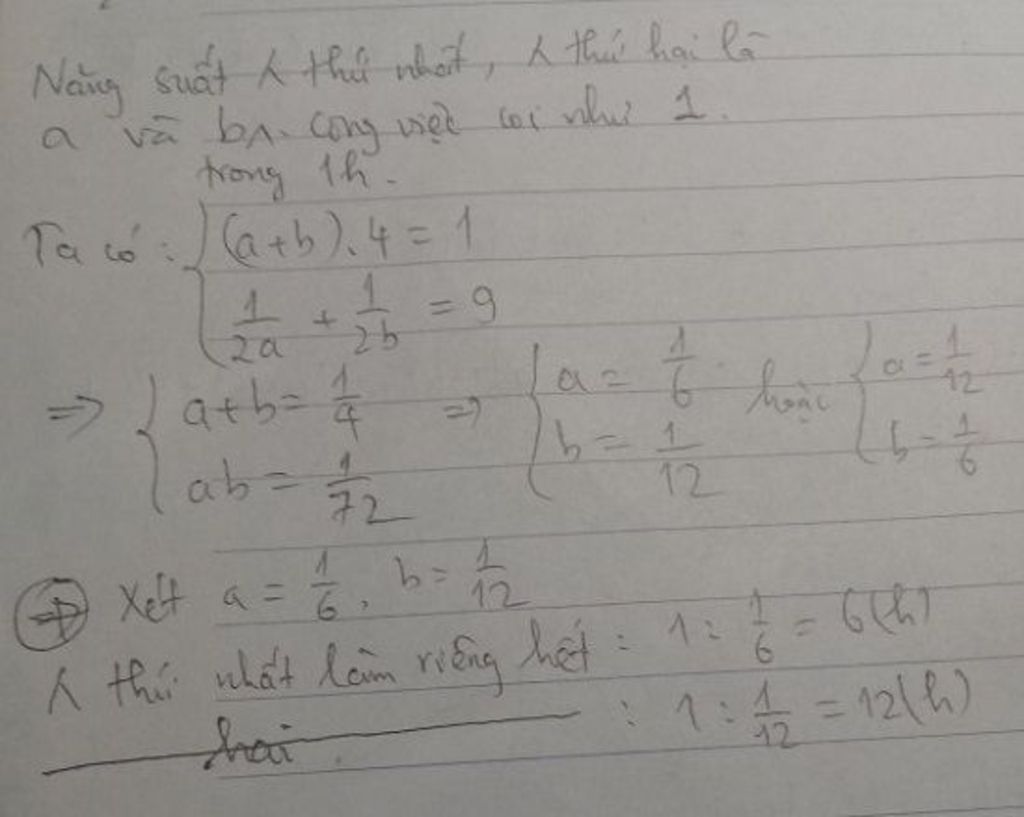 Năng suất λ thứ nhất, λ thứ hai là
a và b λ. công việc coi như 1.
trong 1h.
Ta có: { (a+b).4 = 1
1/2a + 1/2b = 9
=> { a+b = 1/4 => { a = 1/6 hoặc { a = 1/12
ab = 1/72 b = 1/12 b = 1/6
+ Xét a = 1/6, b = 1/12
λ thứ nhất làm riêng hết : 1 : 1/6 = 6(h)
hai : 1 : 1/12 = 12(h)